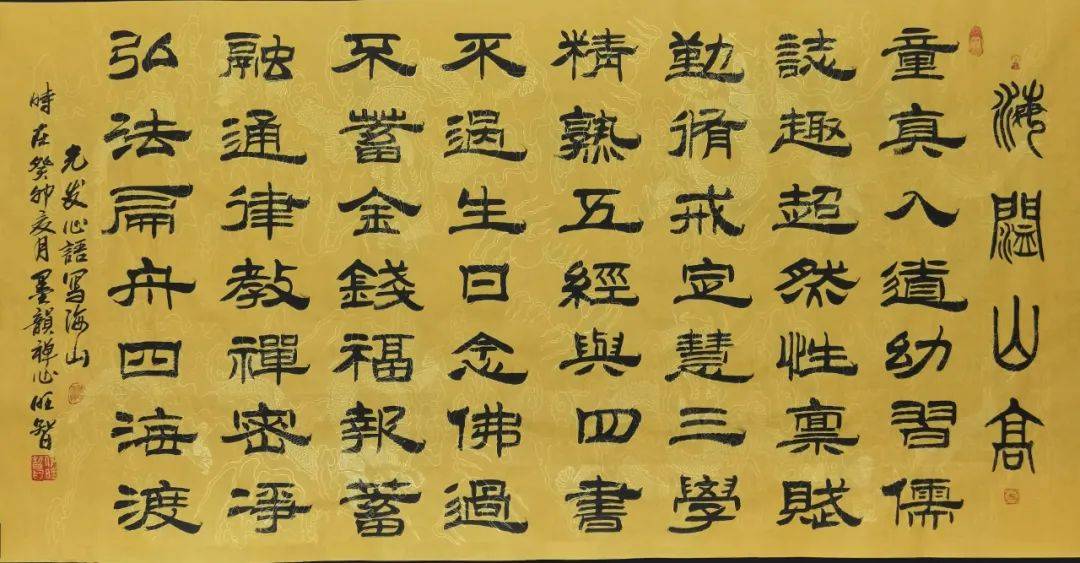 海闊山高
童真入道幼習儒
誌趣超然性禀賦
勤脩戒定慧三學
精熟五經與四書
不過生日念佛過
不蓄金錢福報蓄
融通律教禪密淨
弘法扁舟四海渡
心語寫海山
時在癸卯亥月墨韻禅心旺智